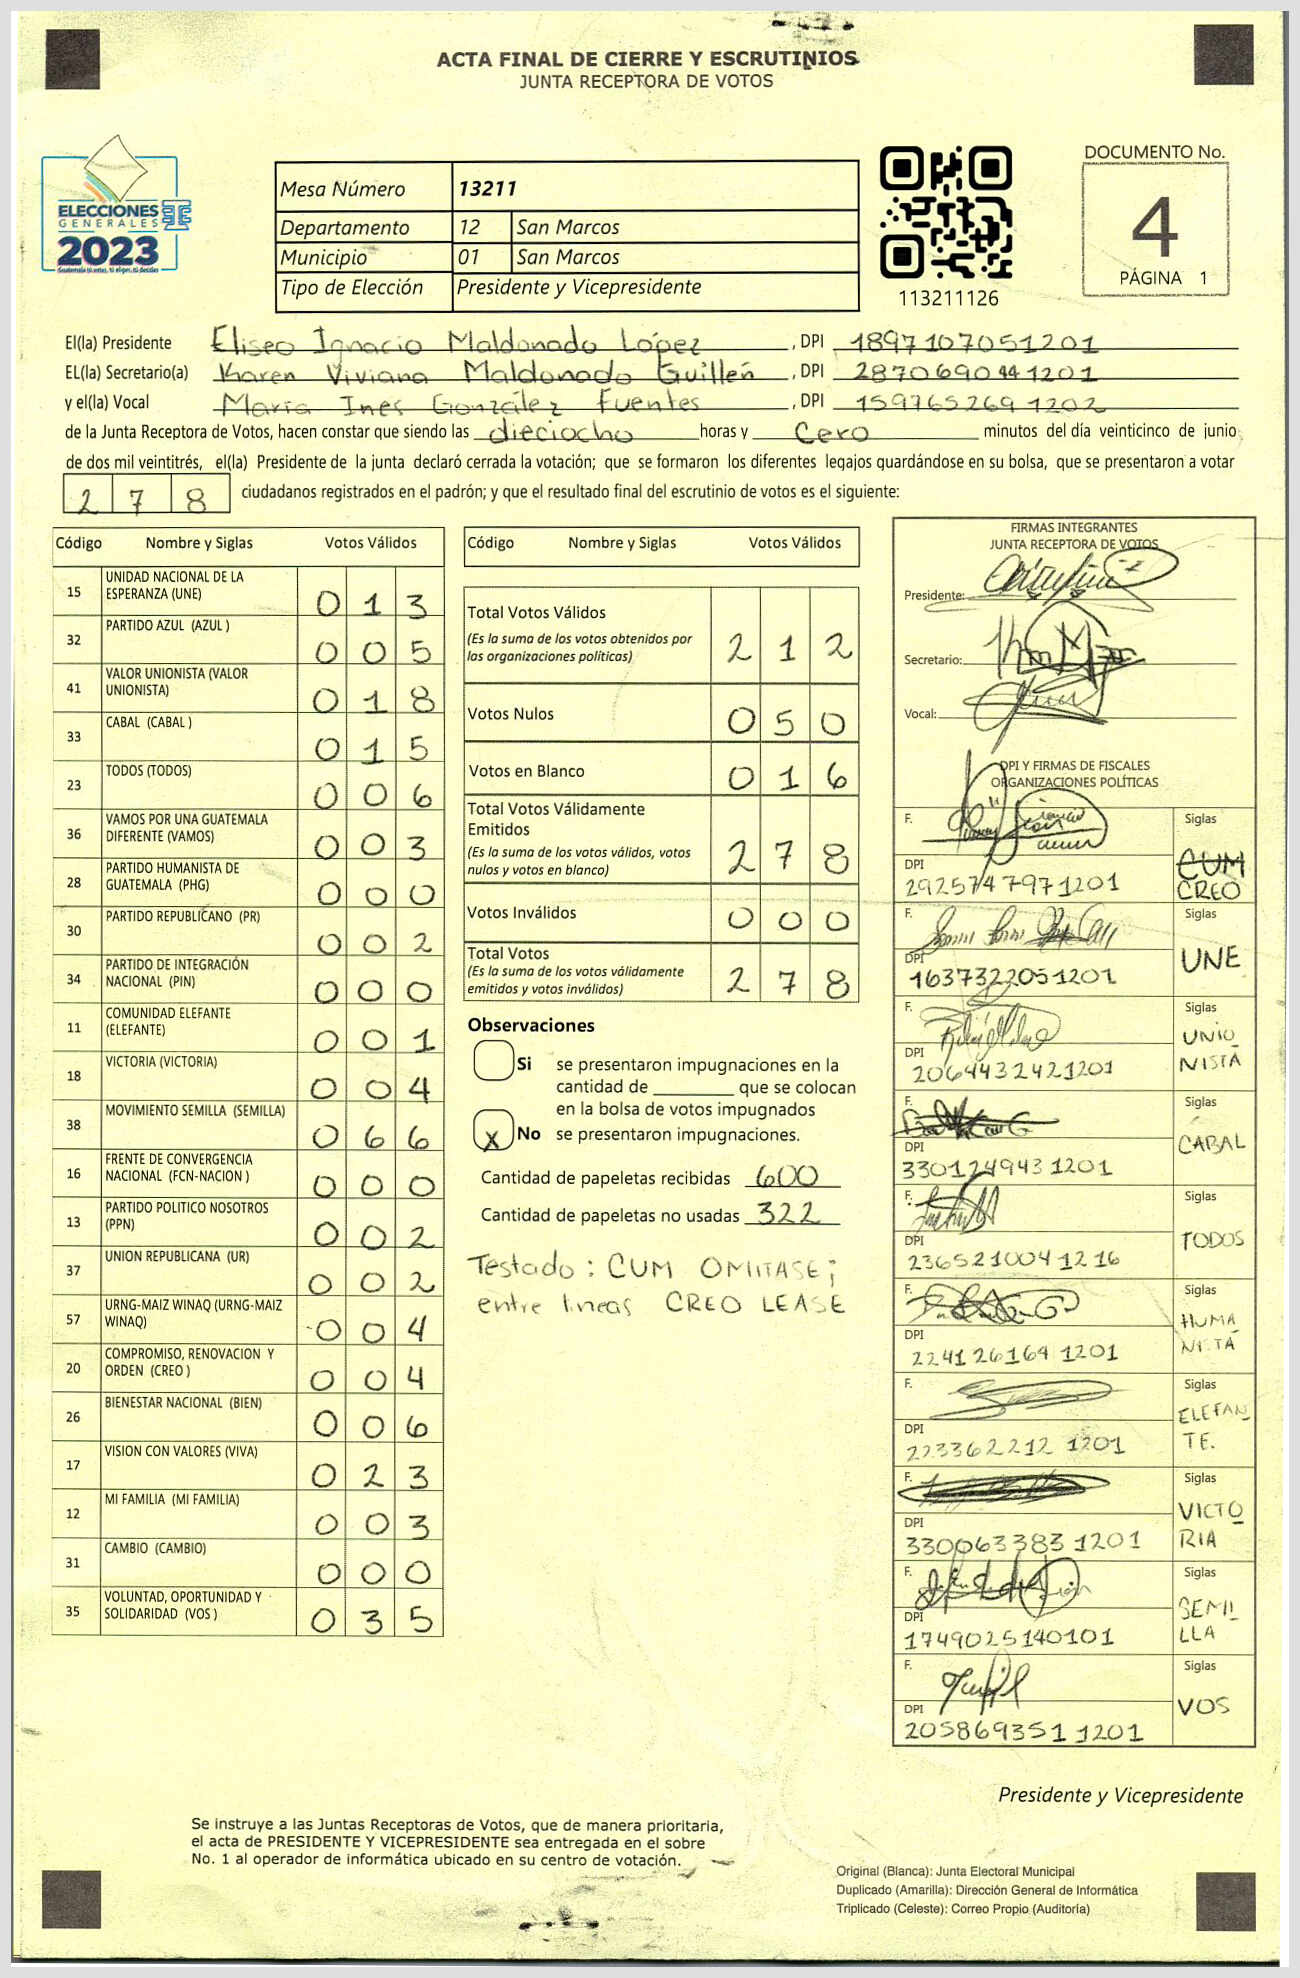 ACTA FINAL DE CIERRE Y ESCRUTINIOS
JUNTA RECEPTORA DE VOTOS
ELECCIONES
GENERALES
2023
Mesa Número 13211
Departamento 12 San Marcos
Municipio 01 San Marcos
Tipo de Elección Presidente y Vicepresidente
113211126
DOCUMENTO No.
4
PÁGINA 1
El(la) Presidente Eliseo Ignacio Maldonado López, DPI 1897107051201
EL(la) Secretario(a) Karen Viviana Maldonado Guillén, DPI 2870690441201
y el(la) Vocal María Ines González Fuentes, DPI 1597652691202
de la Junta Receptora de Votos, hacen constar que siendo las dieciocho horas y Cero minutos del día veinticinco de junio
de dos mil veintitrés, el(la) Presidente de la junta declaró cerrada la votación; que se formaron los diferentes legajos guardándose en su bolsa, que se presentaron a votar
278 ciudadanos registrados en el padrón; y que el resultado final del escrutinio de votos es el siguiente:
Código Nombre y Siglas Votos Válidos
15 UNIDAD NACIONAL DE LA
ESPERANZA (UNE) 013
32 PARTIDO AZUL (AZUL ) 005
41 VALOR UNIONISTA (VALOR
UNIONISTA) 018
33 CABAL (CABAL ) 015
23 TODOS (TODOS) 006
36 VAMOS POR UNA GUATEMALA
DIFERENTE (VAMOS) 003
28 PARTIDO HUMANISTA DE
GUATEMALA (PHG) 000
30 PARTIDO REPUBLICANO (PR) 002
34 PARTIDO DE INTEGRACIÓN
NACIONAL (PIN) 000
11 COMUNIDAD ELEFANTE
(ELEFANTE) 001
18 VICTORIA (VICTORIA) 004
38 MOVIMIENTO SEMILLA (SEMILLA) 066
16 FRENTE DE CONVERGENCIA
NACIONAL (FCN-NACION ) 000
13 PARTIDO POLITICO NOSOTROS
(PPN) 002
37 UNION REPUBLICANA (UR) 002
57 URNG-MAIZ WINAQ (URNG-MAIZ
WINAQ) 004
20 COMPROMISO, RENOVACION Y
ORDEN (CREO ) 004
26 BIENESTAR NACIONAL (BIEN) 006
17 VISION CON VALORES (VIVA) 023
12 MI FAMILIA (MI FAMILIA) 003
31 CAMBIO (CAMBIO) 000
35 VOLUNTAD, OPORTUNIDAD Y
SOLIDARIDAD (VOS ) 035
Código Nombre y Siglas Votos Válidos
Total Votos Válidos
(Es la suma de los votos obtenidos por
las organizaciones políticas) 212
Votos Nulos 050
Votos en Blanco 016
Total Votos Válidamente
Emitidos
(Es la suma de los votos válidos, votos
nulos y votos en blanco) 278
Votos Inválidos 000
Total Votos
(Es la suma de los votos válidamente
emitidos y votos inválidos) 278
Observaciones
Si se presentaron impugnaciones en la
cantidad de ________ que se colocan
en la bolsa de votos impugnados
X No se presentaron impugnaciones.
Cantidad de papeletas recibidas 600
Cantidad de papeletas no usadas 322
Testado: CUM OMITASE;
entre lineas CREO LEASE
FIRMAS INTEGRANTES
JUNTA RECEPTORA DE VOTOS
Presidente:
Secretario:
Vocal:
DPI Y FIRMAS DE FISCALES
ORGANIZACIONES POLÍTICAS
F. Siglas
CUM
CREO
DPI
2925747971201
F. Siglas
UNE
DPI
1637322051201
F. Siglas
UNIO
NISTA
DPI
2064432421201
F. Siglas
CABAL
DPI
3301249431201
F. Siglas
TODOS
DPI
2365210041216
F. Siglas
HUMA
NISTA
DPI
2241261641201
F. Siglas
ELEFAN
TE.
DPI
2233622121201
F. Siglas
VICTO
RIA
DPI
3300633831201
F. Siglas
SEMI
LLA
DPI
1749025140101
F. Siglas
VOS
DPI
2058693511201
Presidente y Vicepresidente
Se instruye a las Juntas Receptoras de Votos, que de manera prioritaria,
el acta de PRESIDENTE Y VICEPRESIDENTE sea entregada en el sobre
No. 1 al operador de informática ubicado en su centro de votación.
Original (Blanca): Junta Electoral Municipal
Duplicado (Amarilla): Dirección General de Informática
Triplicado (Celeste): Correo Propio (Auditoría)